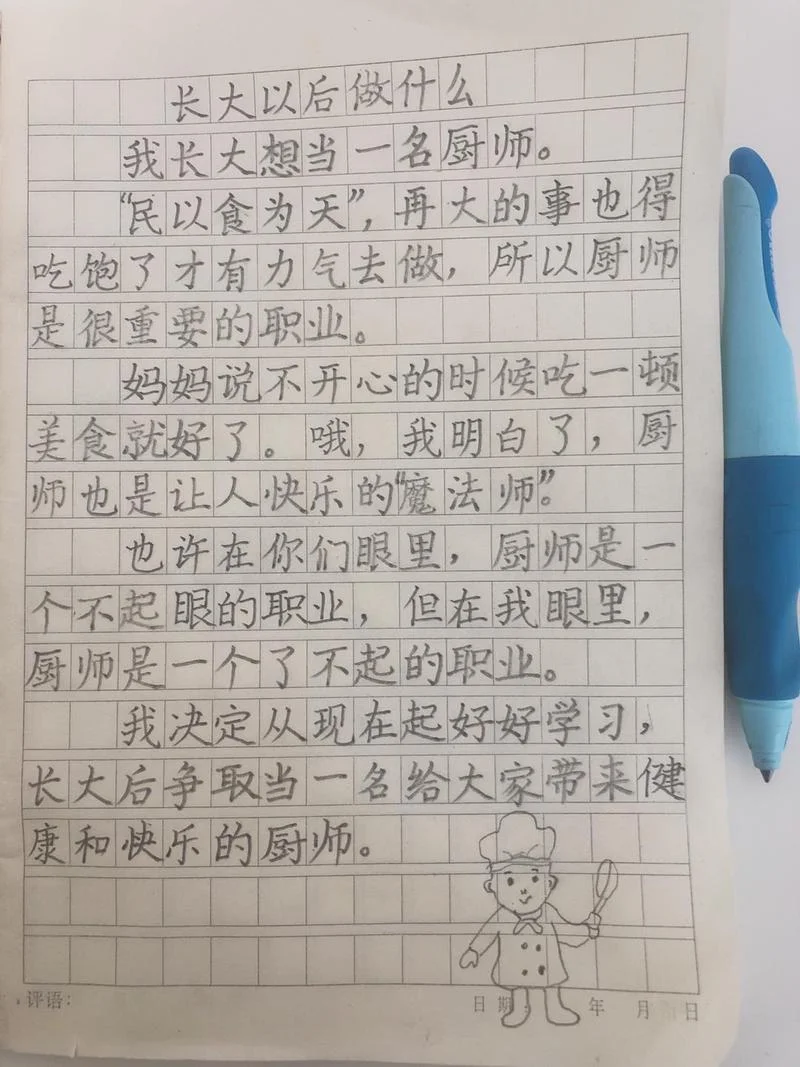 长大以后做什么
我长大想当一名厨师。
“民以食为天”，再大的事也得
吃饱了才有力气去做，所以厨师
是很重要的职业。
妈妈说不开心的时候吃一顿
美食就好了。哦，我明白了，厨
师也是让人快乐的“魔法师”。
也许在你们眼里，厨师是一
个不起眼的职业，但在我眼里，
厨师是一个了不起的职业。
我决定从现在起好好学习，
长大后争取当一名给大家带来健
康和快乐的厨师。
评语：
日期： 年 月 日